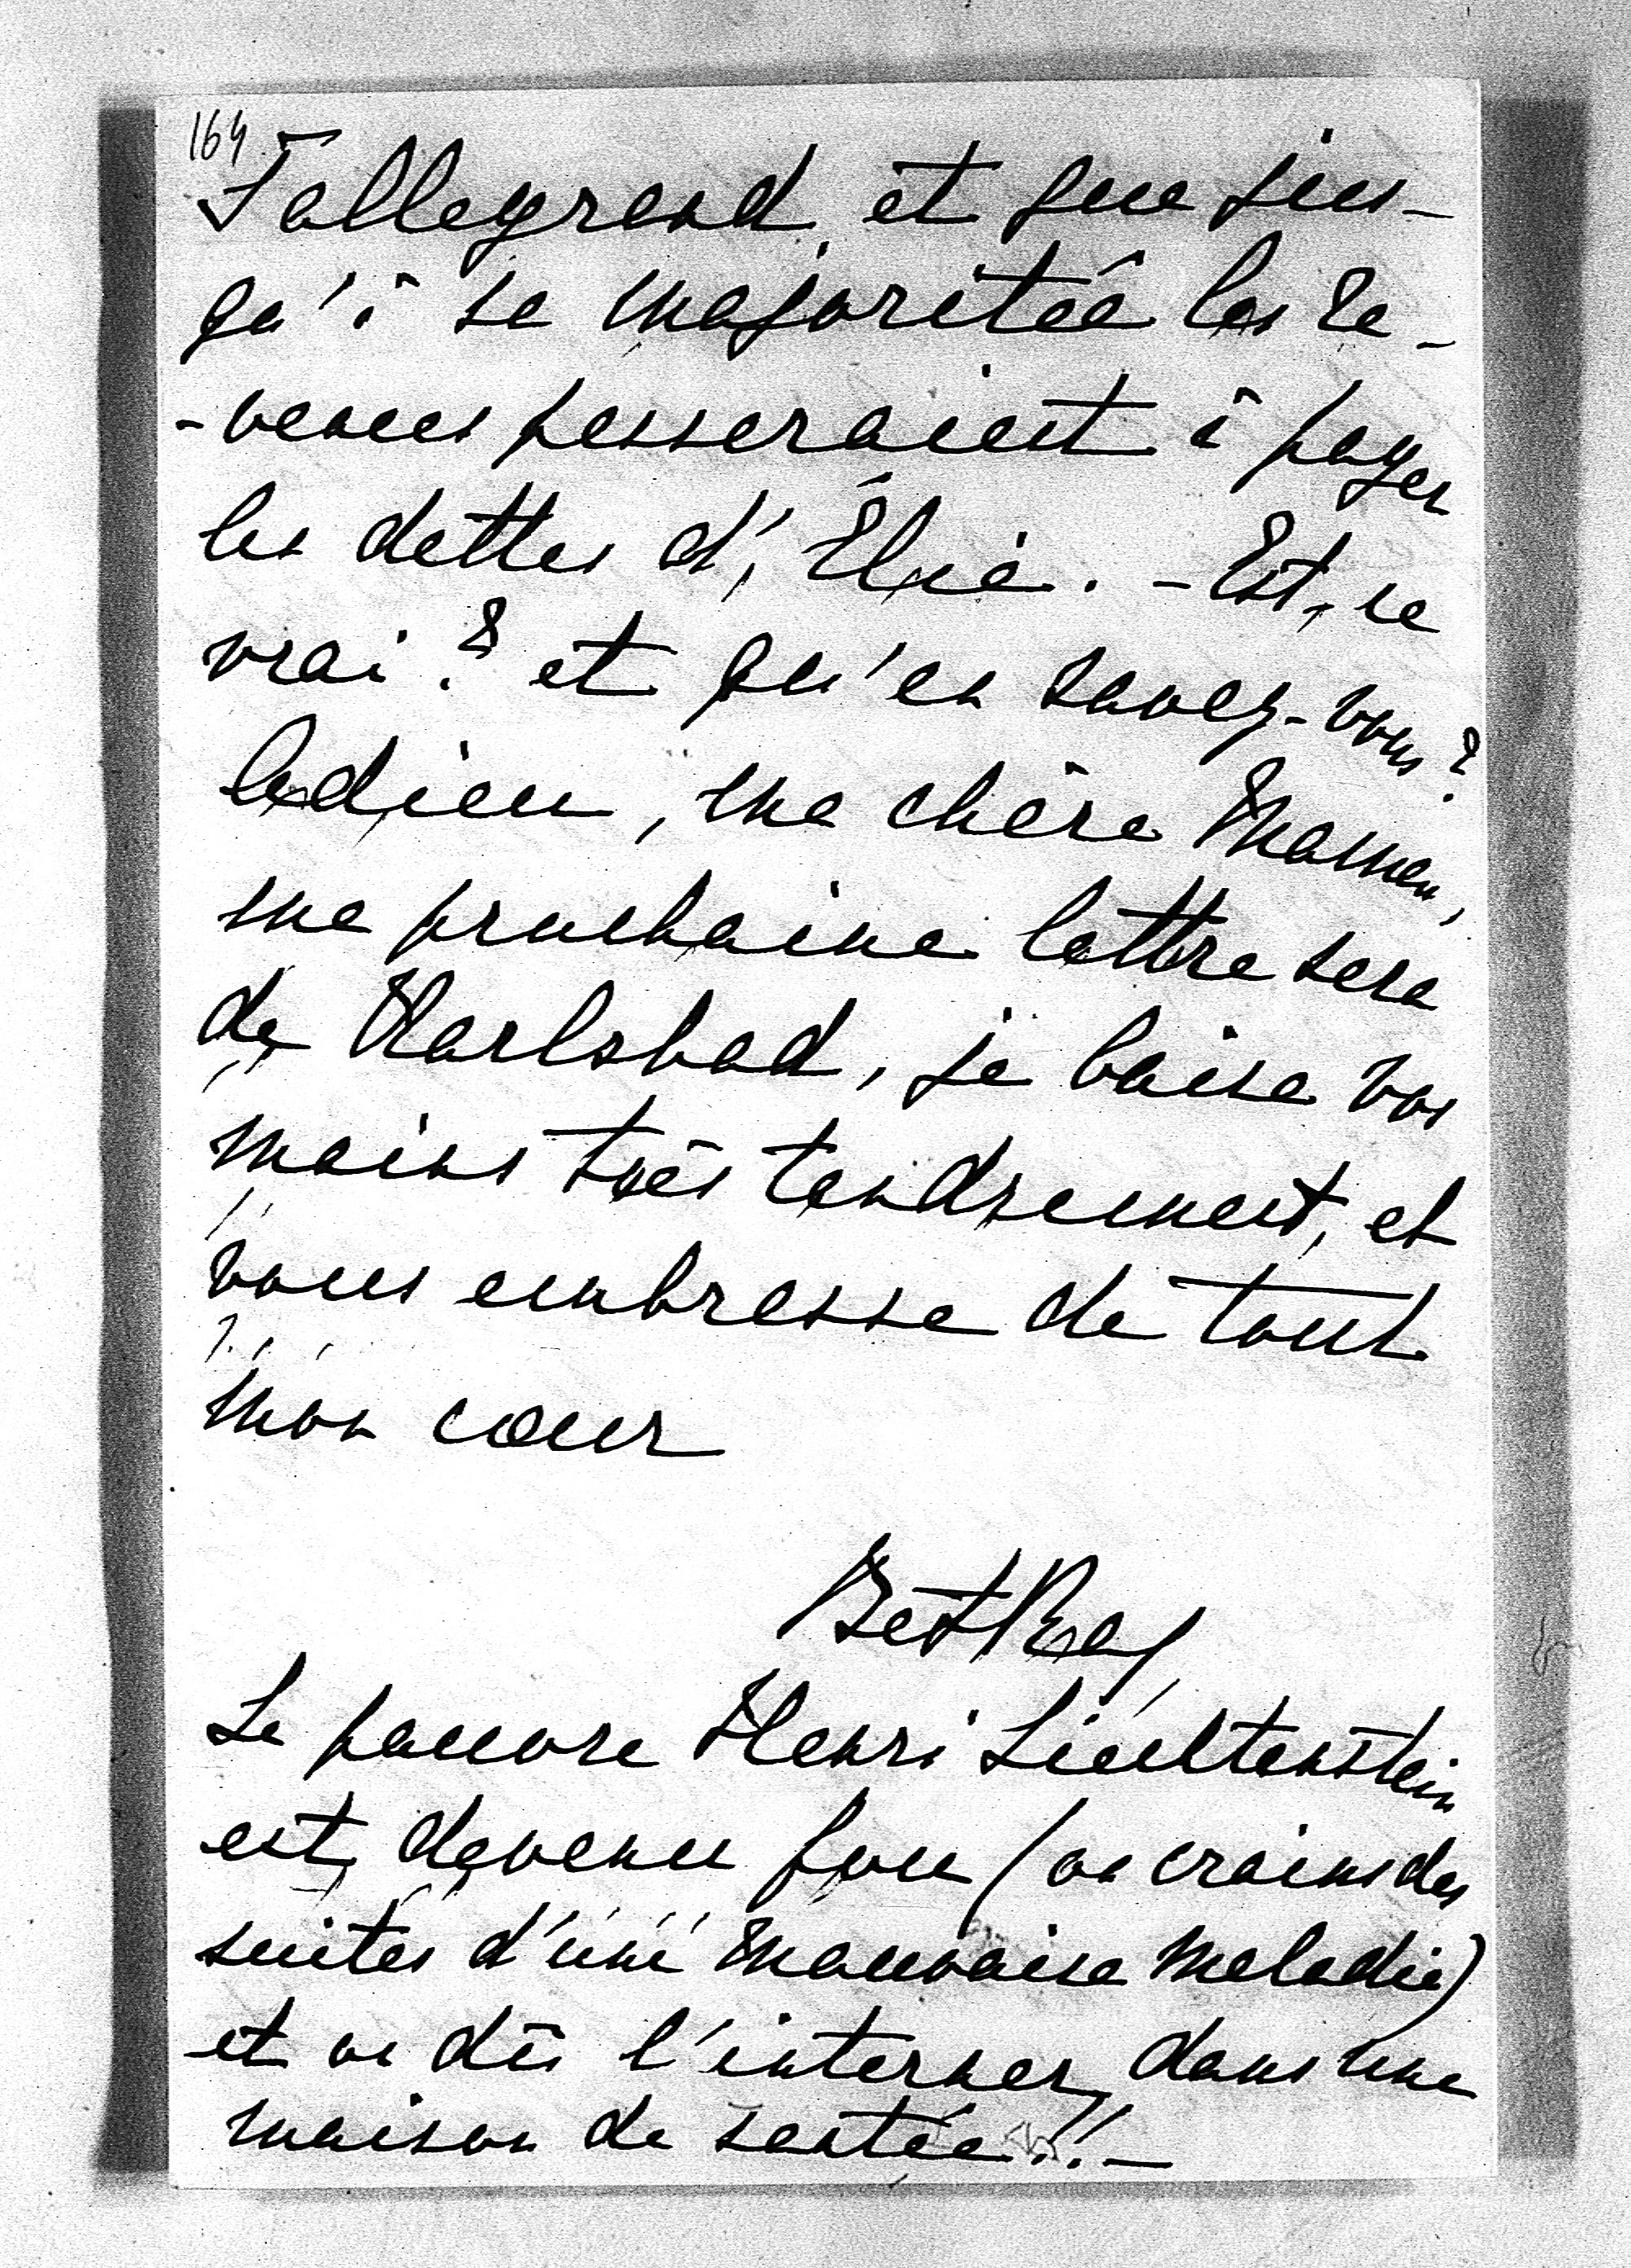 164
Talleyrand et que jus-
qu'à sa majoritée les re-
-venus passeraient à payer
les dettes d'Élie. - Est-ce
vrai? et qu'en savez-vous?
Adieu, ma chère Maman,
ma prochaine lettre sera
de Karlsbad, je baise vos
mains très tendrement, et
vous embrasse de tout
mon cœur
Le pauvre Henri Liechtenstein
est devenu fou (on crains des
suites d'une mauvaise maladie)
et on dû l'interner dans une
maison de santée!! -